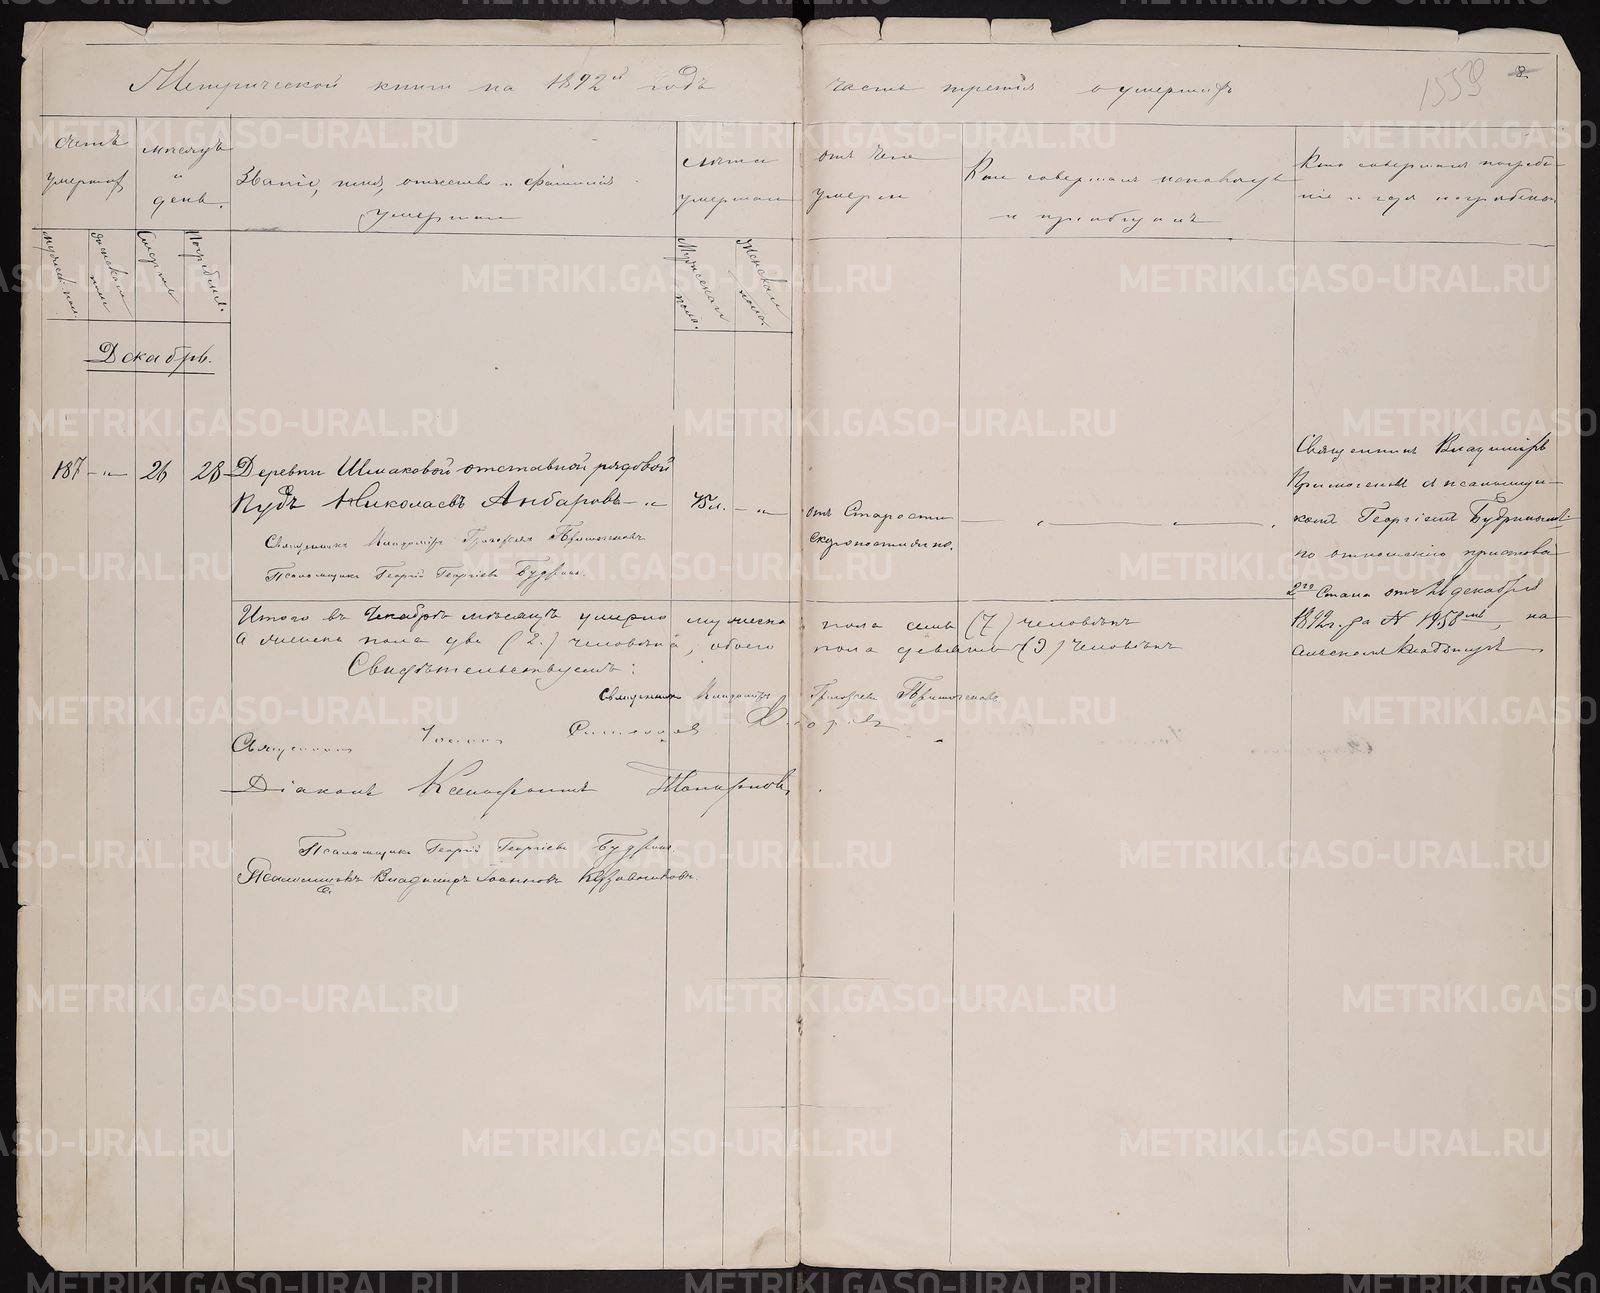 Метрической книги на 1892й годъ часть третія о умершихъ
1553
Счетъ умершихъ
мѣсяцъ и день.
Званіе, имя, отчество и фамилія умершаго
лѣта умершаго
отъ чего умеръ
Кто совершалъ исповѣдь и пріобщалъ
Кто совершалъ погребеніе и гдѣ погребены
мужеска пола.
женскаго пола
Смерти
Погребенія.
Мужскаго пола.
Женскаго пола
Декабрь.
187 - „ - 26 28 Деревни Шмаковой отставной рядовой
Кудъ Николаевъ Анбаровъ - „
- „ -
отъ Старости
скоропостижно.
Священникъ Владиміръ Григорьевъ
Псаломщикъ Георгій Георгіевъ Будринъ.
Священникъ Владиміръ
съ псаломщи-
комъ Георгіемъ Будринымъ
по отношенію пристава
2го Стана отъ декабря
1892г. за № 1958мъ, на
сельскомъ кладбищѣ.
Итого въ Декабрѣ мѣсяцѣ умерло мужеска пола семь (7) человѣкъ
а женска пола два (2.) человѣка, обоего пола девять (9) человѣкъ
Свидѣтельствуемъ:
Священникъ Владиміръ Григорьевъ
Священникъ Іоаннъ
Діаконъ Ксенофонтъ
Псаломщикъ Георгій Георгіевъ Будринъ.
Псаломщикъ Владиміръ Іоанновъ
METRIKI.GASO-URAL.RU